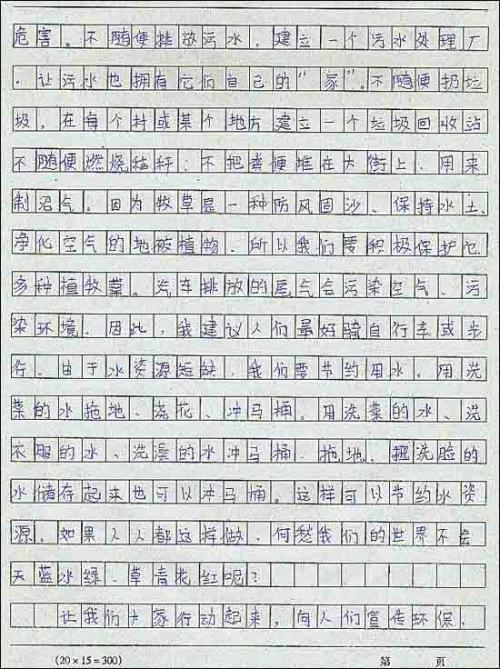 危害。不随便排放污水，建立一个污水处理厂
，让污水也拥有它们自己的“家”。不随便扔垃
圾，在每个村或某个地方建立一个垃圾回收站
不随便燃烧秸秆；不把粪便堆在大街上，用来
制沼气。因为牧草是一种防风固沙、保持水土、
净化空气的地被植物，所以我们要积极保护它
多种植牧草。汽车排放的尾气会污染空气、污
染环境，因此，我建议人们最好骑自行车或步
行。由于水资源短缺，我们要节约用水。用洗
菜的水拖地、浇花、冲马桶。用洗菜的水、洗
衣服的水、洗澡的水冲马桶、拖地，把洗脸的
水储存起来也可以冲马桶。这样可以节约水资
源，如果人人都这样做，何愁我们的世界不会
天蓝水绿、草青花红呢？
让我们大家行动起来，向人们宣传环保，
（20×15=300） 第 页